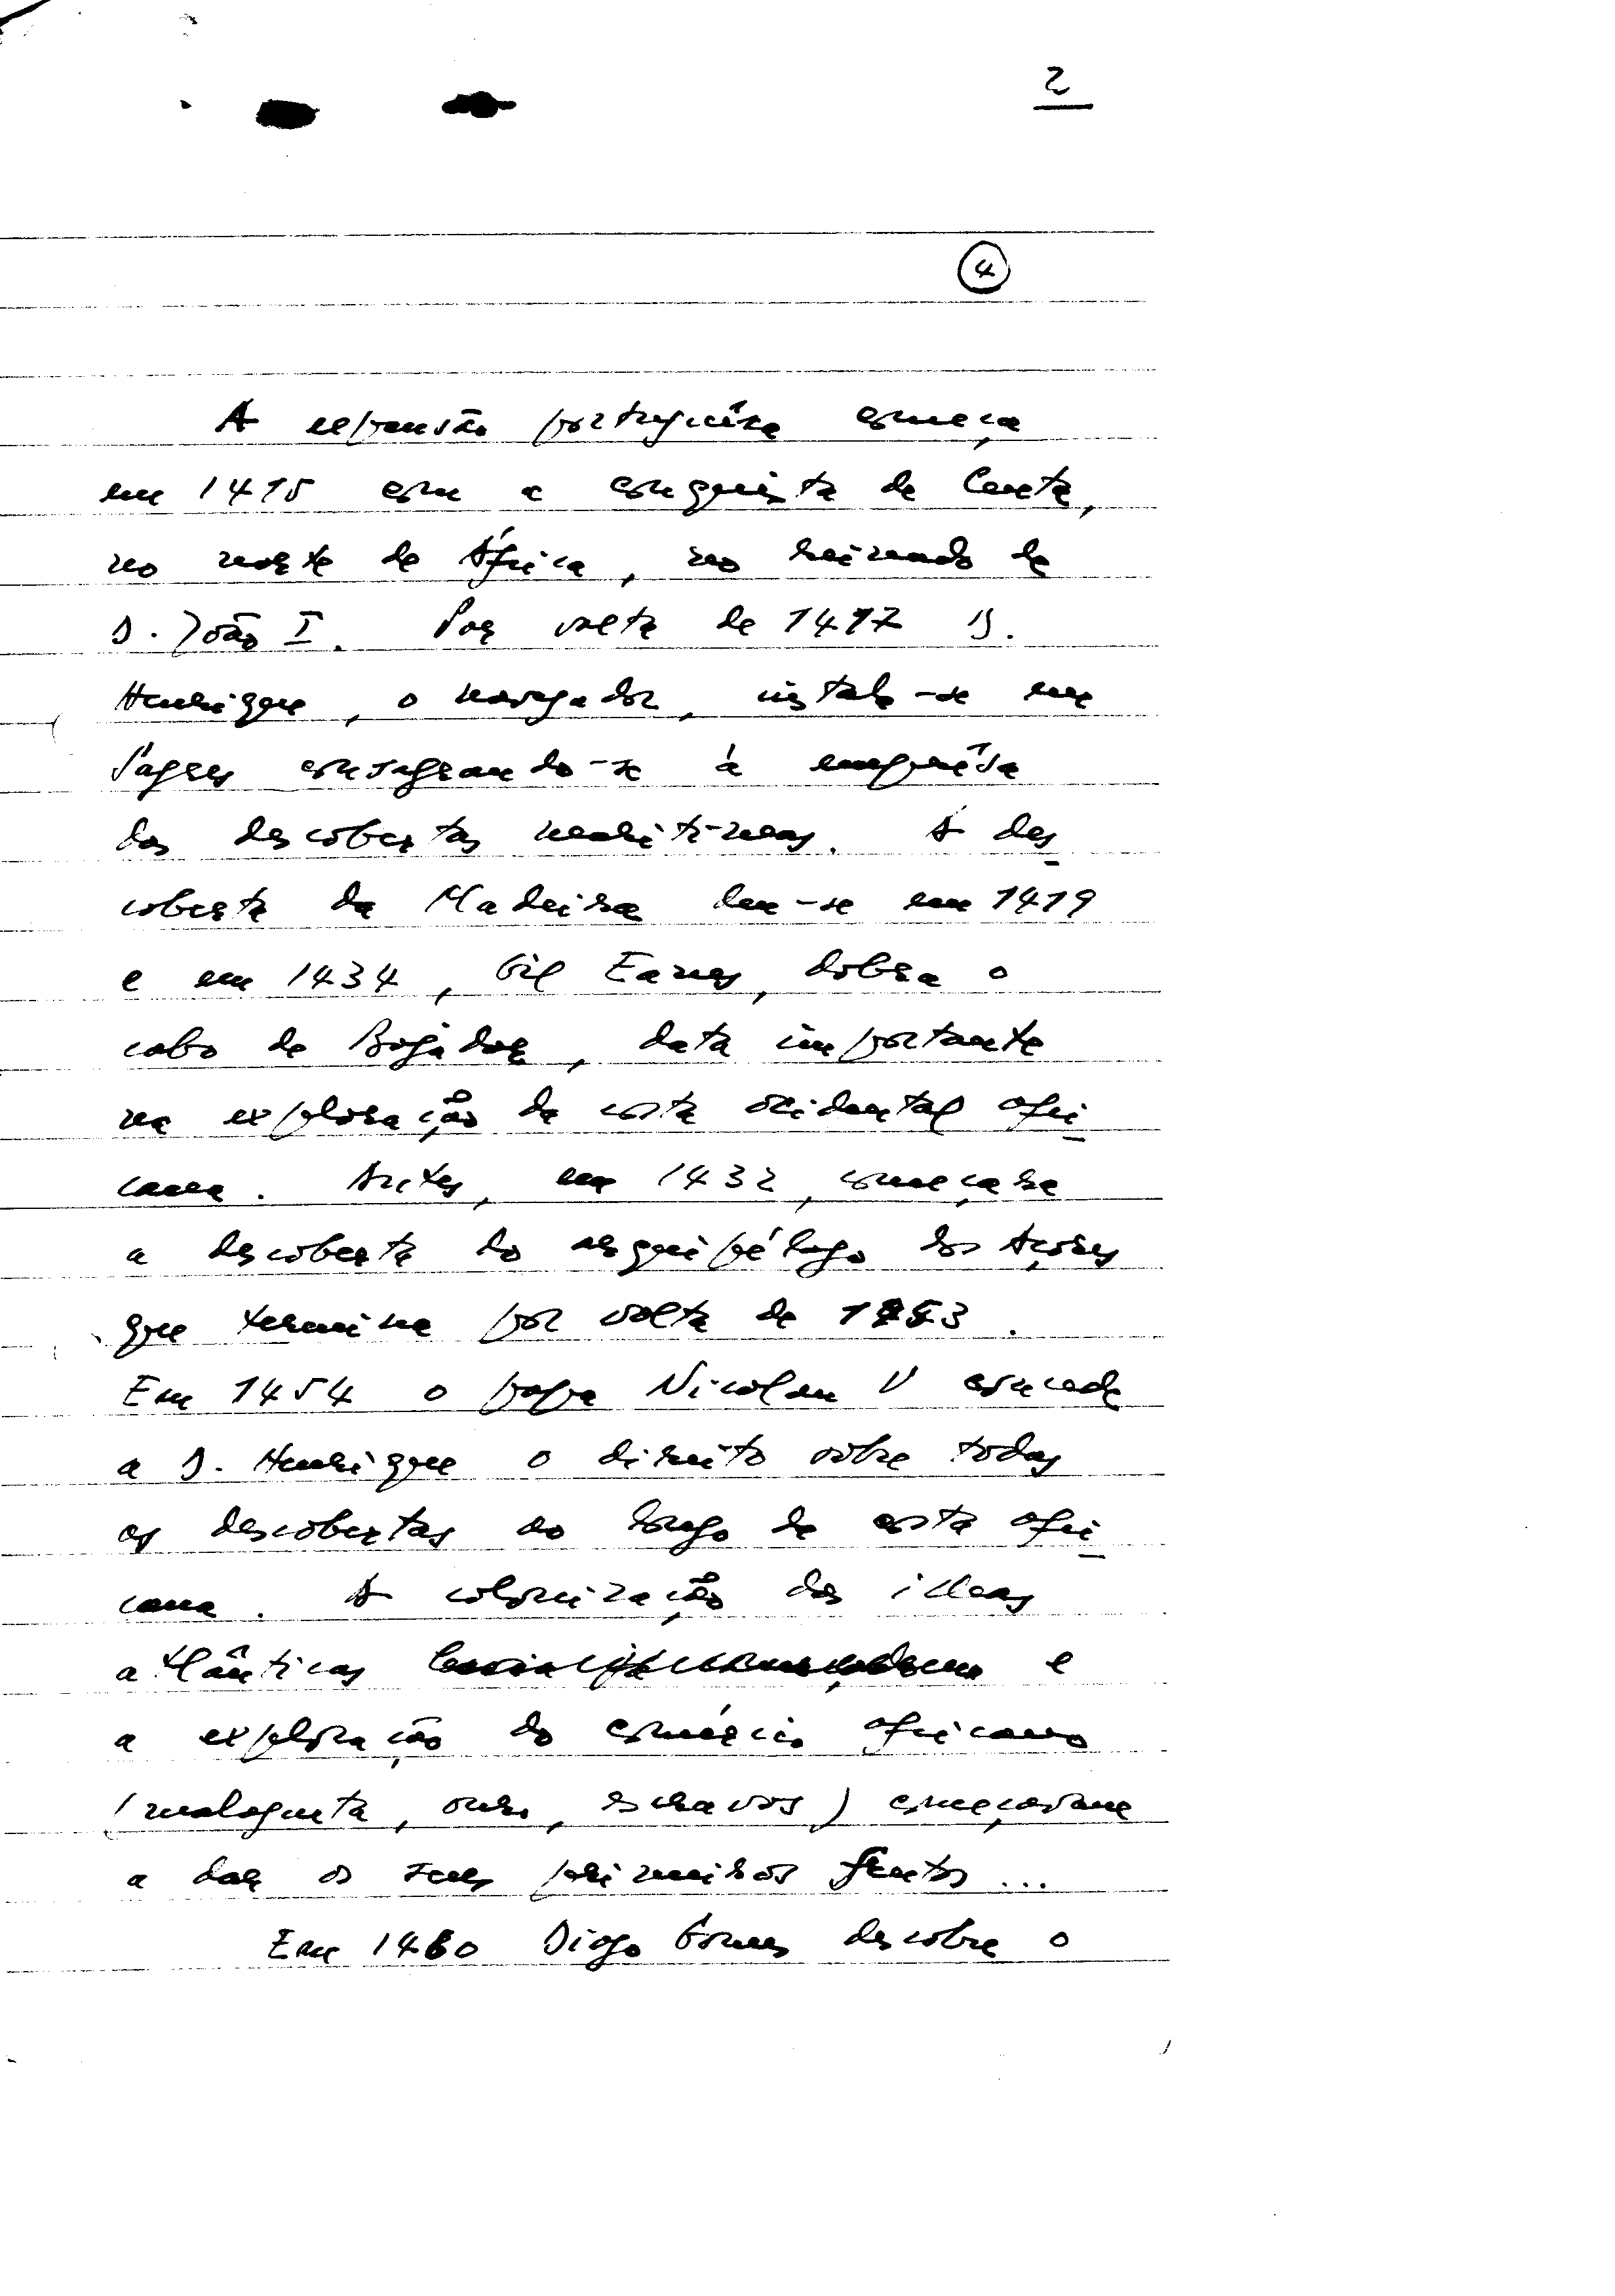 2
4
A expansão portuguêsa começa
em 1415 com a conquista de Ceuta,
no norte de África, no reinado de
D. João I. Por volta de 1417 D.
Henrique, o navegador, instala-se em
Sagres consagrando-se à emprêsa
das descobertas marítimas. A des
coberta da Madeira deu-se em 1419
e em 1434, Gil Eanes, dobra o
cabo de Bojador, data importante
na exploração da costa ocidental afri
cana. Antes, em 1432, começara
a descoberta do arquipélago dos Açores
que termina por volta de
Em 1454 o papa Nicolau V concede
a D. Henrique o direito sôbre todas
as descobertas ao longo da costa afri
cana. A colonização das ilhas
atlânticas e
a exploração do comércio africano
(malagueta, ouro, escravos) começavam
a dar os seus primeiros frutos...
Em 1460 Diogo Gomes descobre o